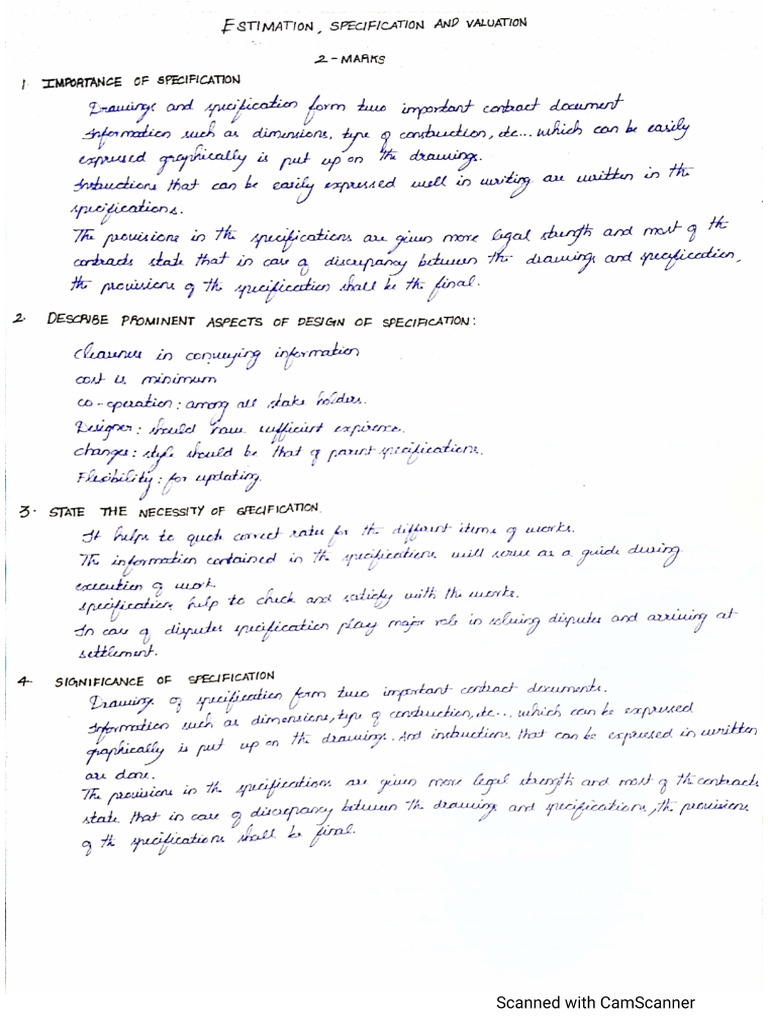 ESTIMATION, SPECIFICATION AND VALUATION
2-MARKS
1. IMPORTANCE OF SPECIFICATION
Drawings and specification form two important contract document
Information such as dimensions, type of construction, etc... which can be easily
expressed graphically is put up on the drawings.
Instuctions that can be easily expressed well in writing are written in the
specifications.
The provisions in the specifications are given more legal strength and most of the
contracts state that in case of discrepancy between the drawings and specification,
the provisions of the specification shall be the final.
2. DESCRIBE PROMINENT ASPECTS OF DESIGN OF SPECIFICATION:
Clearness in conveying information
cost is minimum
co-operation: among all stake holders.
Designer: should have sufficient expirence.
changes: style should be that of parent specifications.
Flexibility: for updating.
3. STATE THE NECESSITY OF SPECIFICATION
It helps to quote correct rates for the different items of works.
The information contained in the specifications will serve as a guide during
execution of work.
specifications help to check and satisfy with the works.
In case of disputes specification play major role in solving disputes and arriving at
settlement.
4. SIGNIFICANCE OF SPECIFICATION
Drawings of specification form two important contract documents.
Information such as dimensions, type of construction, etc... which can be expressed
graphically is put up on the drawings. And instructions that can be expressed in written
are done.
The provisions in the specifications are given more legal strength and most of the contracts
state that in case of discrepancy between the drawings and specifications, the provisions
of the specifications shall be final.
Scanned with CamScanner